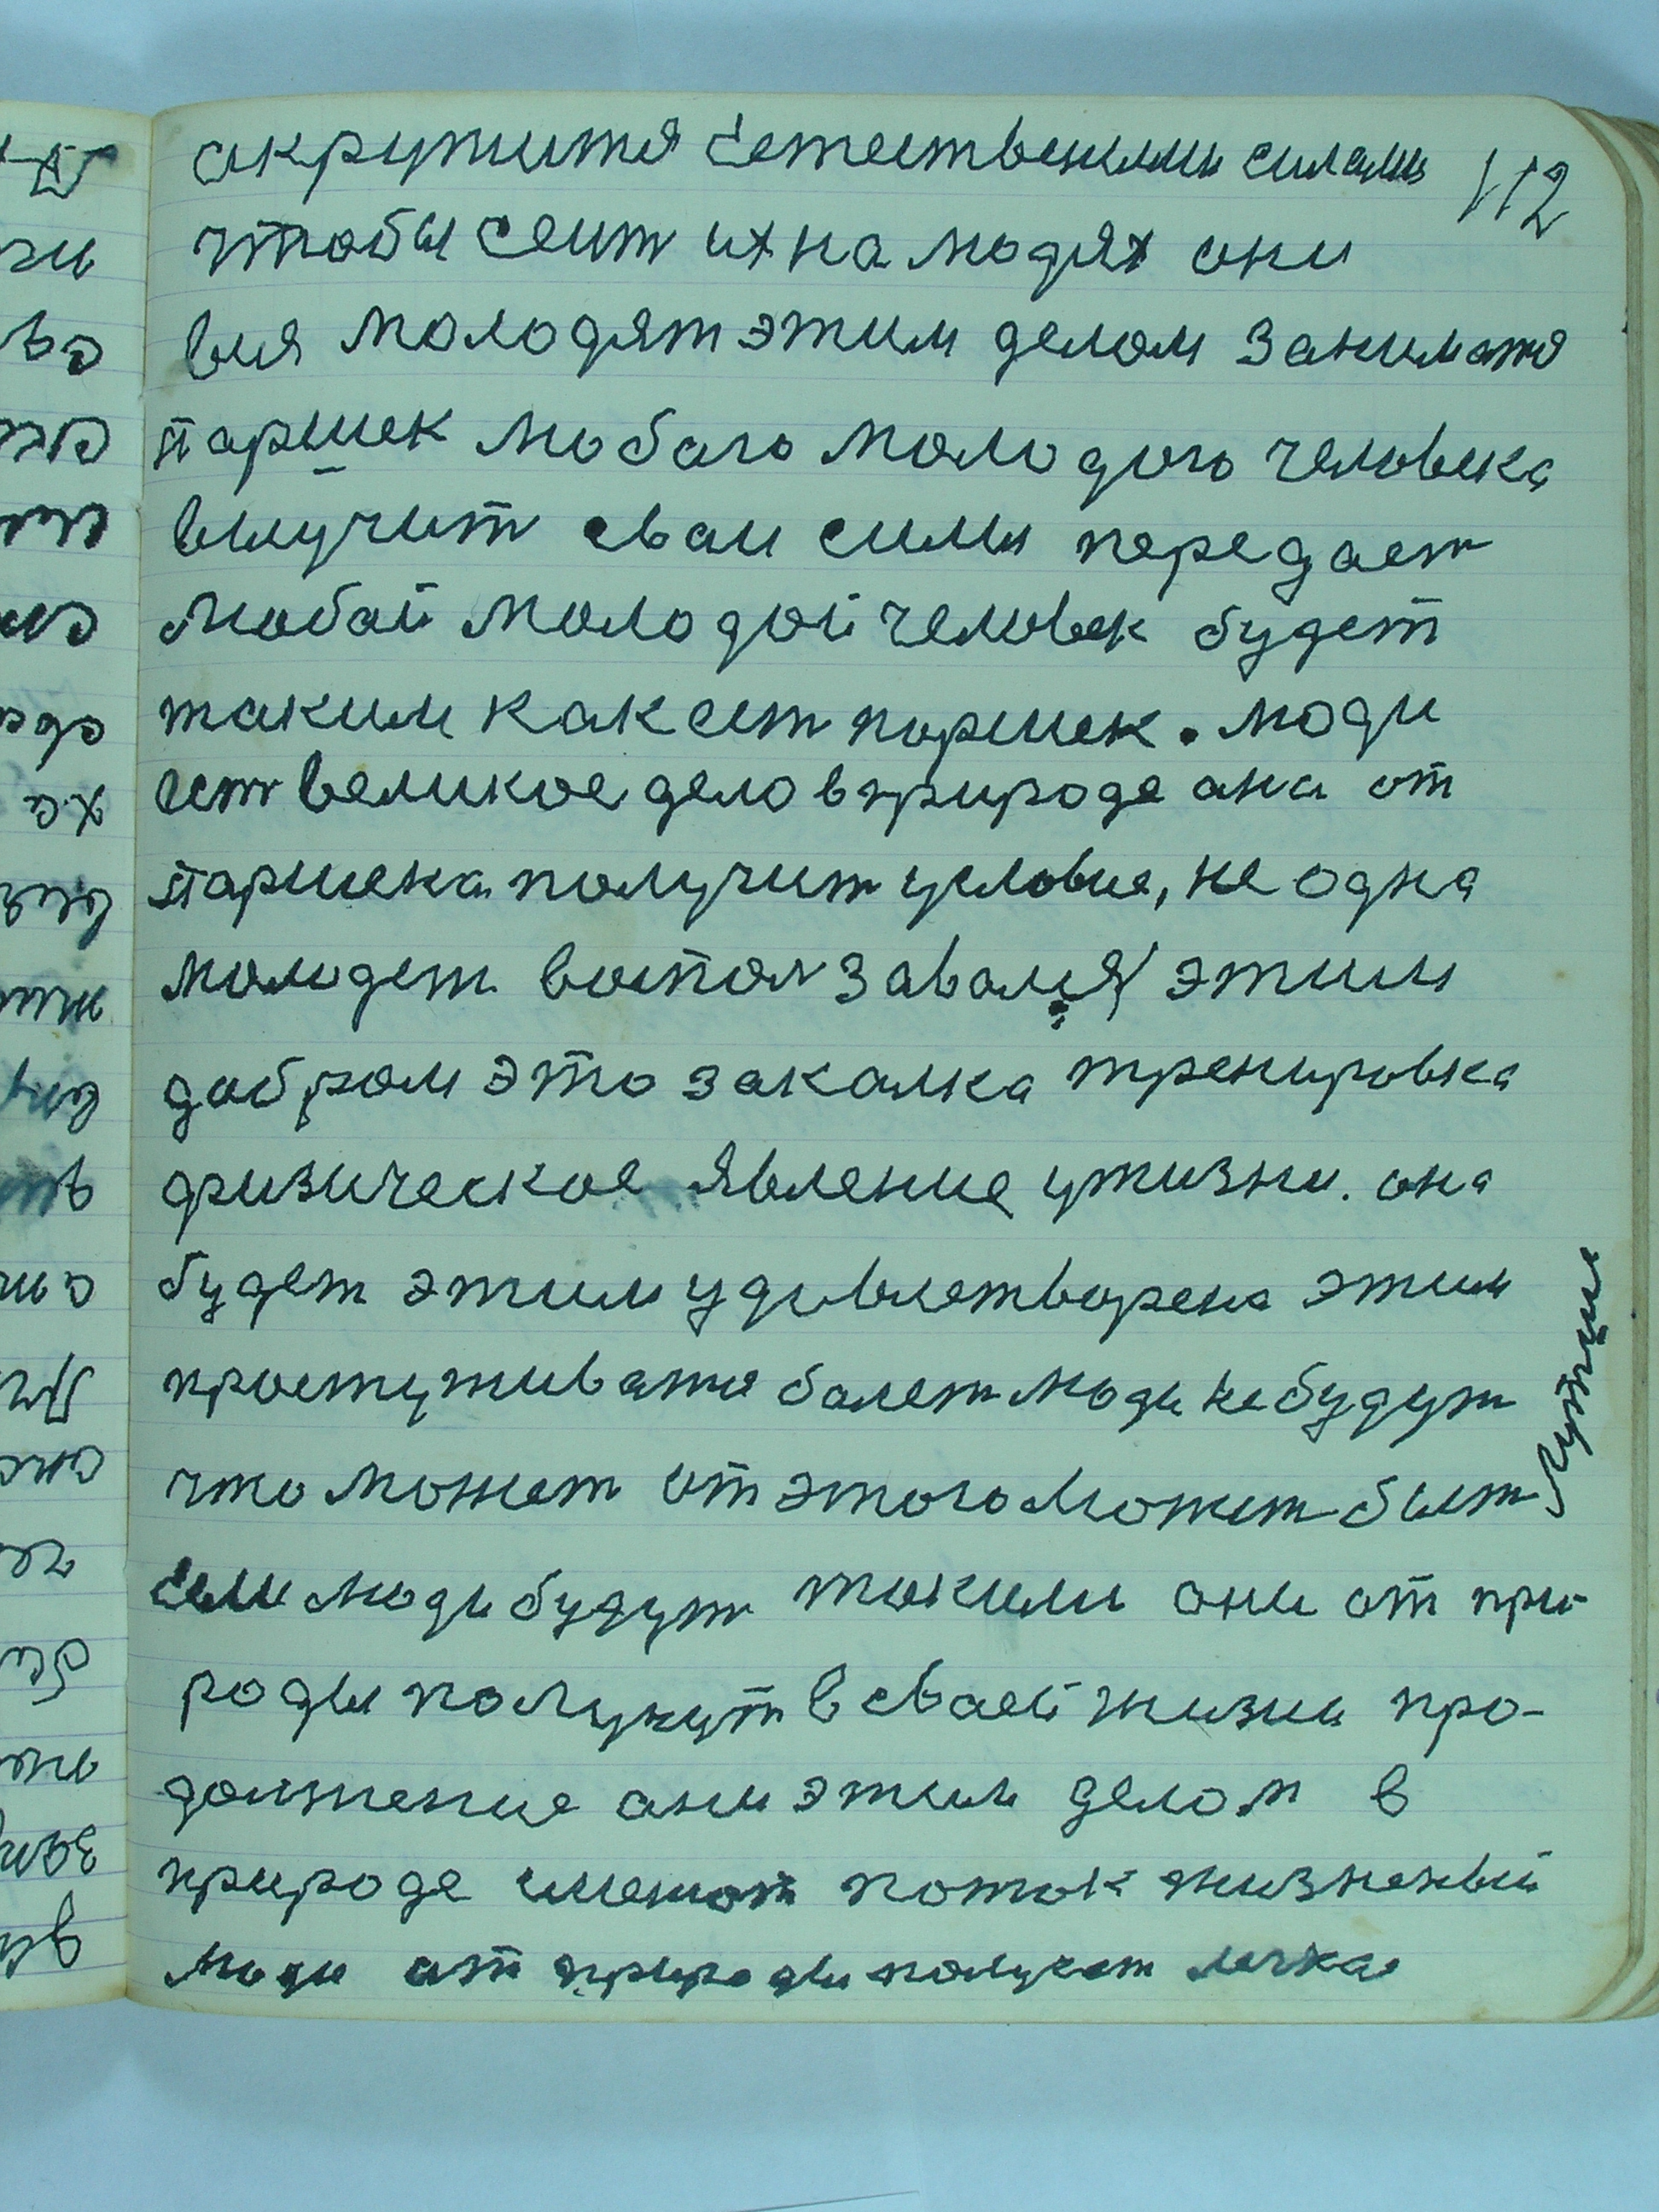 112
окружится естествеными силами
чтобы сеит их на людях они
вся молодят этим делом заниматя
паршек любого молодого человека
вылучит сваи силы передаст
любай молодой человек будет
таким как ест паршек. люди
ест великое дело в природе ана от
паршека получит условие, не одна
молодет востользавалця этим
добром это закалка тренировка
физическое явление у жизни. она
будет этим удовлетворена этим
простуживатя болет люди не будут
что может от этого может быт
если люди будут такими они от при-
роды получут в сваей жизни про-
должение ани этим делом в
природе имеют поток жизненый
люди от природы получат легкое